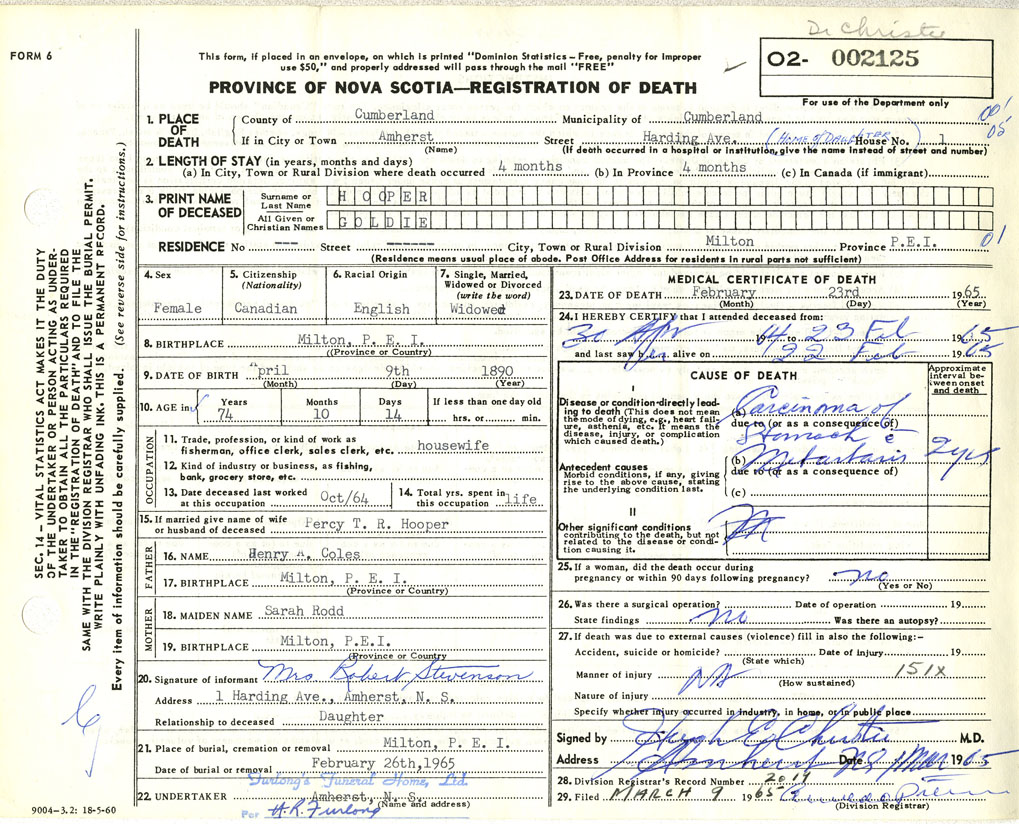 Dr Christie
FORM 6
This form, if placed in an envelope, on which is printed "Dominion Statistics – Free, penalty for improper
use $50," and properly addressed will pass through the mail "FREE"
O2- 002125
For use of the Department only
PROVINCE OF NOVA SCOTIA—REGISTRATION OF DEATH
1. PLACE OF DEATH
County of Cumberland Municipality of Cumberland
If in City or Town Amherst Street Harding Ave. (HOME OF DAUGHTER) House No. 1
(Name) (If death occurred in a hospital or institution, give the name instead of street and number)
05
2. LENGTH OF STAY (in years, months and days)
(a) In City, Town or Rural Division where death occurred 4 months (b) In Province 4 months (c) In Canada (if immigrant)
3. PRINT NAME OF DECEASED
Surname or Last Name HOOPER
All Given or Christian Names GOLDIE
RESIDENCE No --- Street ------ City, Town or Rural Division Milton Province P.E.I. 01
(Residence means usual place of abode. Post Office Address for residents in rural parts not sufficient)
4. Sex
Female
5. Citizenship (Nationality)
Canadian
6. Racial Origin
English
7. Single, Married, Widowed or Divorced (write the word)
Widowed
8. BIRTHPLACE Milton, P. E. I.
(Province or Country)
9. DATE OF BIRTH April 9th 1890
(Month) (Day) (Year)
10. AGE in Years 74 Months 10 Days 14 If less than one day old hrs. or min.
OCCUPATION
11. Trade, profession, or kind of work as
fisherman, office clerk, sales clerk, etc. housewife
12. Kind of industry or business, as fishing,
bank, grocery store, etc.
13. Date deceased last worked at this occupation Oct/64
14. Total yrs. spent in this occupation life
15. If married give name of wife
or husband of deceased Percy T. R. Hooper
FATHER
16. NAME Henry A. Coles
17. BIRTHPLACE Milton, P. E. I.
(Province or Country)
MOTHER
18. MAIDEN NAME Sarah Rodd
19. BIRTHPLACE Milton, P.E.I.
(Province or Country
20. Signature of informant Mrs Robert Stevenson
Address 1 Harding Ave., Amherst, N. S.
Relationship to deceased Daughter
21. Place of burial, cremation or removal Milton, P. E. I.
Date of burial or removal February 26th,1965
Furlong's Funeral Home, Ltd.
22. UNDERTAKER Amherst, N. S.
(Name and address)
Per H.R. Furlong
MEDICAL CERTIFICATE OF DEATH
23. DATE OF DEATH February 23rd 1965
(Month) (Day) (Year)
24. I HEREBY CERTIFY that I attended deceased from:
30 Apr 1964 to 23 Feb 1965
and last saw her alive on 22 Feb 1965
CAUSE OF DEATH
Approximate interval between onset and death
I
Disease or condition directly leading to death (This does not mean the mode of dying, e.g., heart failure, asthenia, etc. It means the disease, injury, or complication which caused death.)
(a) Carcinoma of
due to (or as a consequence of)
Stomach c̄
Antecedent causes
Morbid conditions, if any, giving rise to the above cause, stating the underlying condition last.
(b) Metastasis 2 yrs
due to (or as a consequence of)
(c)
II
Other significant conditions contributing to the death, but not related to the disease or condition causing it.
25. If a woman, did the death occur during
pregnancy or within 90 days following pregnancy? no
(Yes or No)
26. Was there a surgical operation? Date of operation 19
State findings no Was there an autopsy?
27. If death was due to external causes (violence) fill in also the following:–
Accident, suicide or homicide? Date of injury 19
(State which)
Manner of injury NA 151X
(How sustained)
Nature of injury
Specify whether injury occurred in industry, in home, or in public place
Signed by Hugh E Christie M.D.
Address Amherst Date 1 Mar 1965
28. Division Registrar's Record Number 2019
29. Filed MARCH 9 1965
(Division Registrar)
SEC. 14 – VITAL STATISTICS ACT MAKES IT THE DUTY
OF THE UNDERTAKER OR PERSON ACTING AS UNDER-
TAKER TO OBTAIN ALL THE PARTICULARS REQUIRED
IN THE "REGISTRATION OF DEATH" AND TO FILE THE
SAME WITH THE DIVISION REGISTRAR WHO SHALL ISSUE THE BURIAL PERMIT.
WRITE PLAINLY WITH UNFADING INK. THIS IS A PERMANENT RECORD.
Every item of information should be carefully supplied. (See reverse side for instructions.)
9004–3.2: 18-5-60